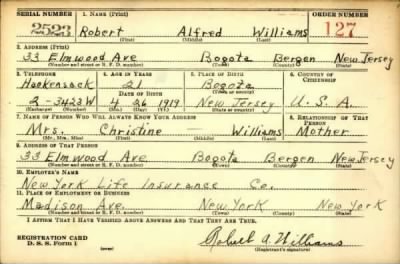 SERIAL NUMBER 1. NAME (Print) ORDER NUMBER
2523 Robert Alfred Williams 127
(First) (Middle) (Last)
2. ADDRESS (Print)
33 Elmwood Ave Bogota Bergen New Jersey
(Number and street or R. F. D. number) (Town) (County) (State)
3. TELEPHONE 4. AGE IN YEARS 5. PLACE OF BIRTH 6. COUNTRY OF CITIZENSHIP
Hackensack 21 Bogota
DATE OF BIRTH
2-3423W 4 26 1919 New Jersey U. S. A.
(Exchange) (Number) (Mo.) (Day) (Yr.) (State or country)
7. NAME OF PERSON WHO WILL ALWAYS KNOW YOUR ADDRESS 8. RELATIONSHIP OF THAT PERSON
Mrs. Christine Williams Mother
(Mr., Mrs., Miss) (First) (Middle) (Last)
9. ADDRESS OF THAT PERSON
33 Elmwood Ave. Bogota Bergen New Jersey
(Number and street or R. F. D. number) (Town) (County) (State)
10. EMPLOYER'S NAME
New York Life Insurance Co.
11. PLACE OF EMPLOYMENT OR BUSINESS
Madison Ave. New York New York
(Number and street or R. F. D. number) (Town) (County) (State)
I AFFIRM THAT I HAVE VERIFIED ABOVE ANSWERS AND THAT THEY ARE TRUE.
REGISTRATION CARD
D. S. S. Form 1 (over) Robert A. Williams
(Registrant's signature)